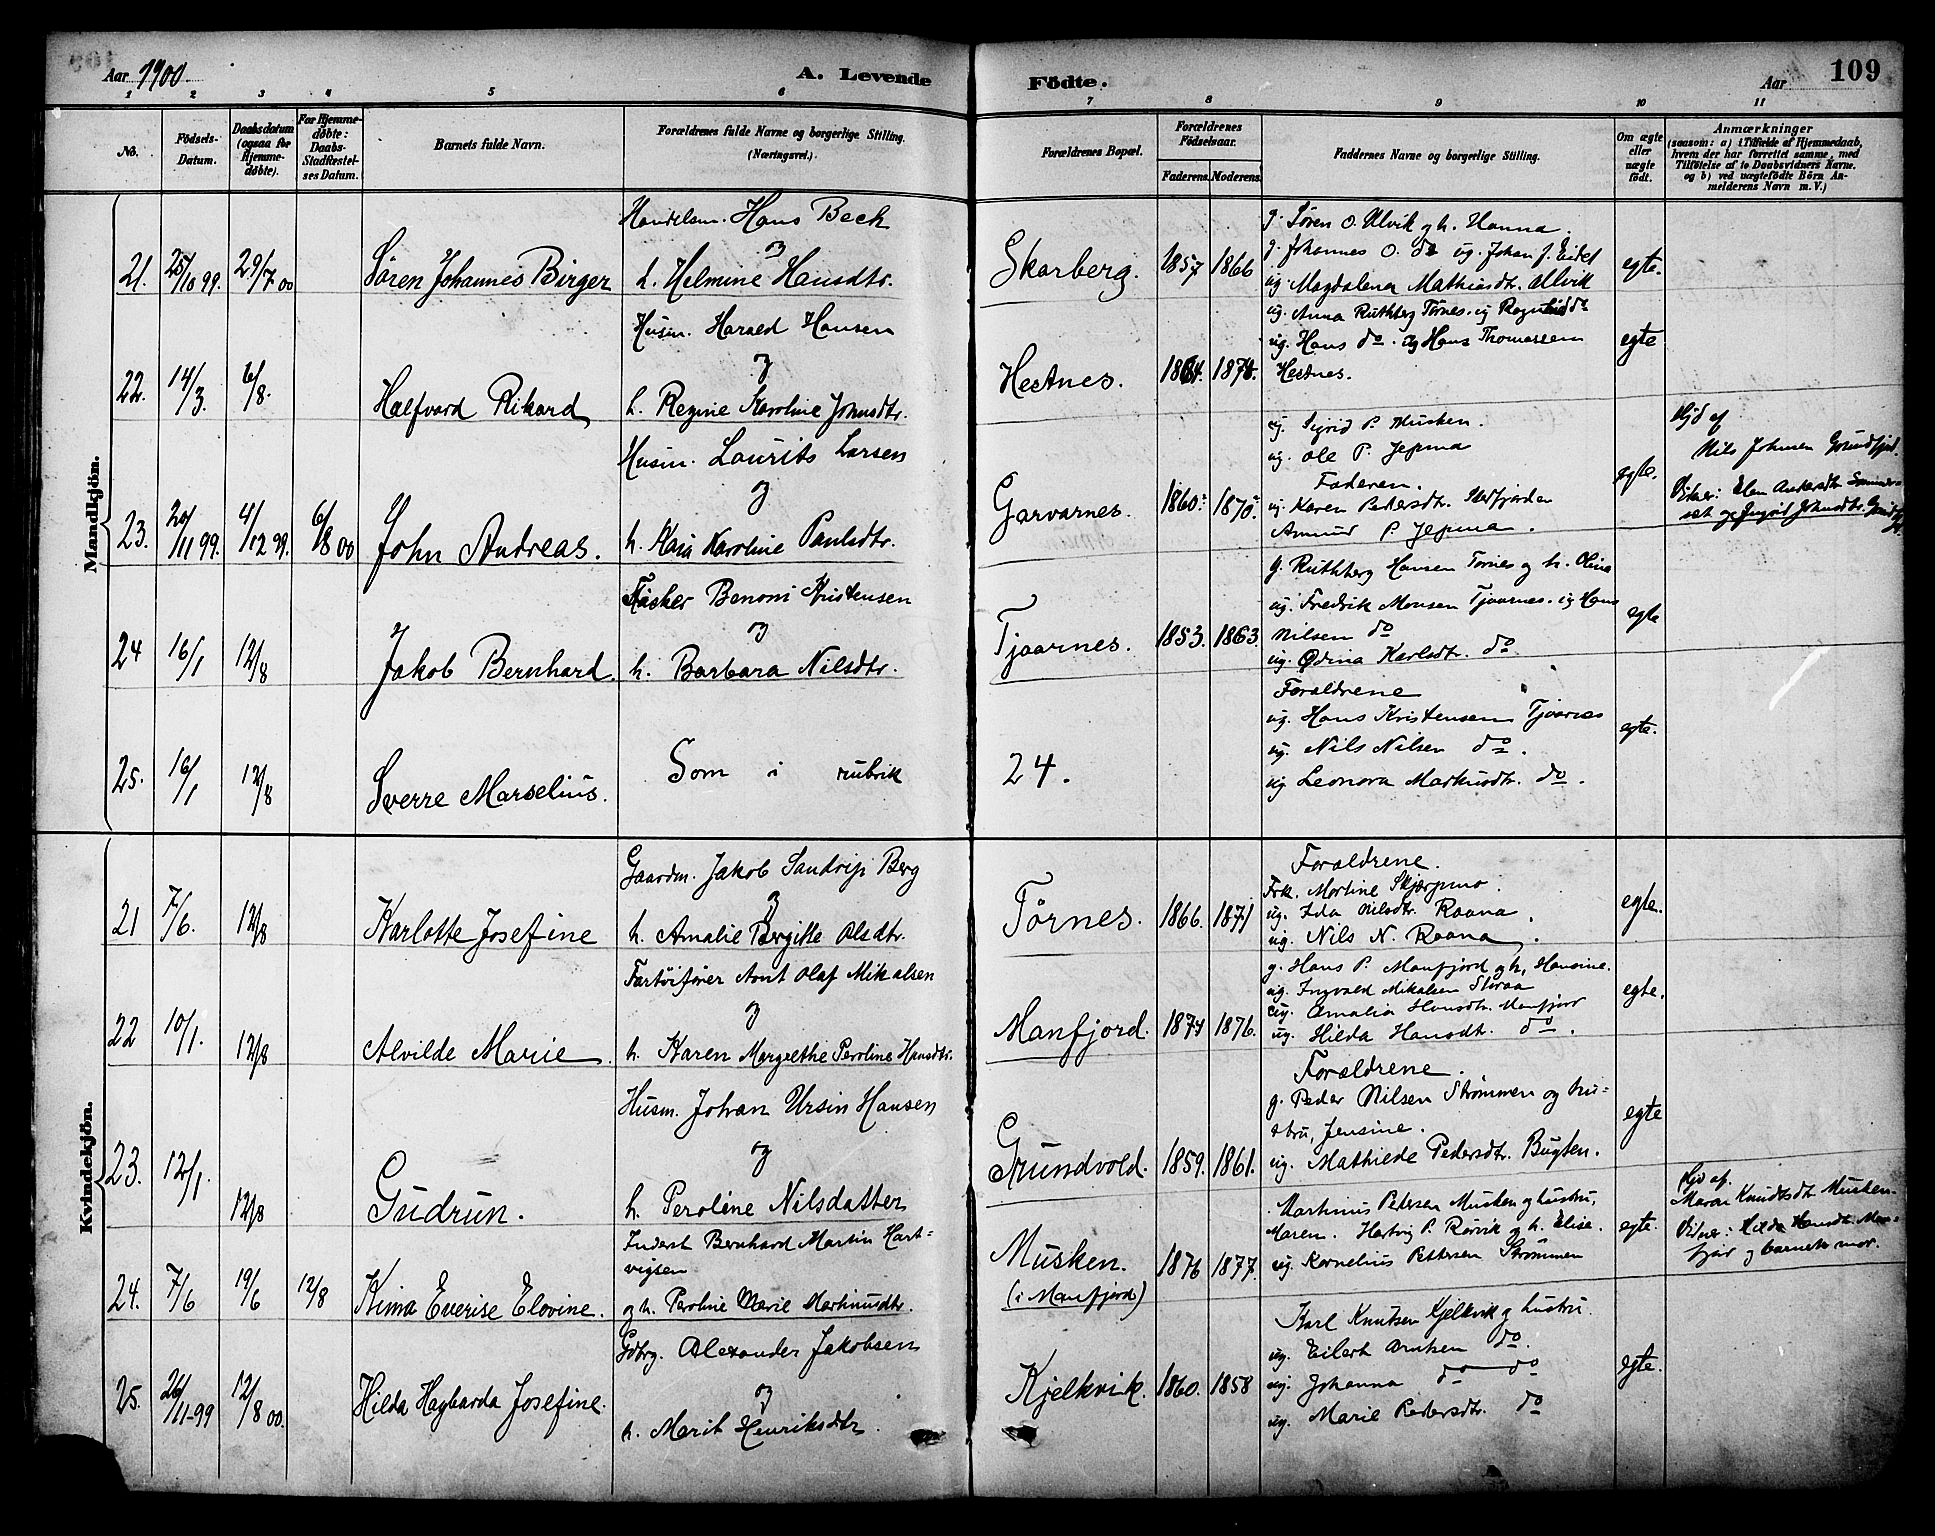 Aar 1900. A. Levende Födte. Aar 109
1 2 3 4 5 6 7 8 9 10 11
No.
Födsels-Datum.
Daabsdatum (ogsaa for Hjemme-døbte).
For Hjemme-døbte: Daabs-Stadfæstel-ses Datum.
Barnets fulde Navn.
Forældrenes fulde Navne og borgerlige Stilling. (Næringsvei.)
Forældrenes Bopæl.
Forældrenes Födselsaar.
Faderens. Moderens.
Faddernes Navne og borgerlige Stilling.
Om ægte eller uægte födt.
Anmærkninger
(saasom: a) i Tilfælde af Hjemmedaab,
hvem der har forrettet samme, med
Tilföielse af to Daabsvidners Navne.
og b) ved uægtefödte Börn An-
melderens Navn m. V.)
Mandkjön.
21. 25/10 99. 29/7 00 Søren Johannes Birger
Handelsm. Hans Beck
og
h. Helmine Hansdtr.
Skarberg. 1857 1866
g. Søren O. Ulvik og h. Hanna.
g. Johannes O. do ug. Johan J. Eidet
ug. Magdalena Mathiasdtr. Ulvik
egte.
22. 14/3. 6/8. Halfvard Rikard
Husm. Harald Hansen
og
h. Regine Karoline Johnsdtr.
Hestnes. 1864. 1874.
ug. Anna Ruthberg Tørnes. ug Ragnhild do
ug. Hans do. og Hans Thomassen
Hestnes.
egte
23. 20/11 99. 4/12 99. 6/8 00 John Andreas.
Husm. Laurits Larsen
og
h. Kaia Karoline Paulsdtr.
Garvarnes. 1860. 1870.
ug. Sigrid P. Musken.
ug. Ole P. Jepma
Faderen.
ug. Karen Pedersdtr.
Amund P. Jepma.
egte.
Hjd af
Nils Johnsen Grundfjord.
Vidner: Elen Andersdtr.
24 16/1 12/8 Jakob Bernhard.
Fisker Benoni Kristensen
og
h. Barbara Nilsdtr.
Tjaarnes. 1853. 1863.
g. Ruthberg Hansen Tørnes og h. Olina
ug. Fredrik Monsen Tjaarnes. ug Hans
Nilsen do
ug. Ødina Karlsdtr. do
egte
25. 16/1 12/8 Sverre Marselius.
Som i rubrik 24.
Foraldrene
ug. Hans Kristensen Tjaarnes
ug. Nils Nilsen do.
ug Leonora Markusdtr. do.
egte.
Kvindekjön.
21 7/6. 12/8 Karlotte Josefine
Gaardm. Jakob Sandrup Berg
og
h. Amalie Bergitte Olsdtr.
Tørnes. 1866. 1871
Foraldrene.
Frk. Martine Skjærpmo.
ug. Ida Nilsdtr. Raana.
ug. Nils N. Raana.
egte.
22 10/1. 12/8 Alvilde Marie.
Fartøifører Arnt Olaf Mikalsen
og
h. Karen Margrethe Peroline Hansdtr.
Manfjord. 1874 1876.
g. Hans P. Manfjord og h, Hansine.
ug. Ingvald Mikalsen
ug. Amalia Hansdtr. Manfjord
ug. Hilda Hansdt. do.
egte.
23. 12/1. 12/8 Gudrun.
Husm. Johan Ursin Hansen
og
h. Peroline Nilsdatter
Grundvold. 1859. 1861.
Foraldrene.
g. Peder Nilsen Strømmen og hu-
stru, Jensine.
ug. Mathilde Pedersdtr. Bugten.
egte
24. 7/6 19/6 12/8 Kima Everise Elovine.
Inderst Bernhard Martin Hart-
vigsen
og h. Peroline Marie Martinusdtr.
Musken. (i Manfjord) 1876 1877.
Martinus Petersen Musken og hustru,
Maren. Hartvig P. Rørvik og h. Elise.
ug. Kornelius Pettersen Strømmen
egte.
Hjd af.
Maren Knudtsdtr Musken.
Vidner: Hilda Hansdtr. Man-
fjord og barnets mor.
25. 26/11-99 12/8 00. Hilda Hagbarda Josefine.
Gdbrg. Alexander Jakobsen
og
h. Marit Henriksdtr.
Kjelkvik. 1860. 1858
Karl Knutsen Kjelkvik og hustru.
ug. Eilert Arntsen do.
ug. Johanna do do
ug. Marie Pedersdtr. do
egte.